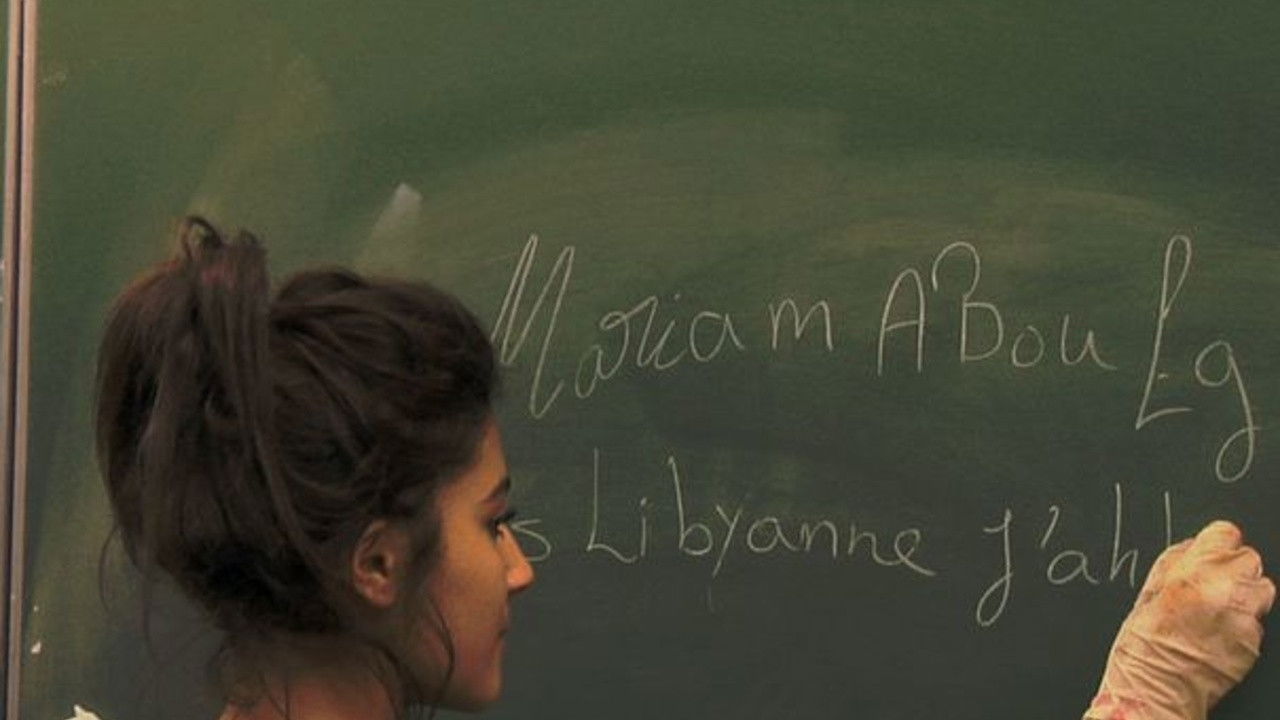 Mariam ABou Eg
s Libyanne J'ah